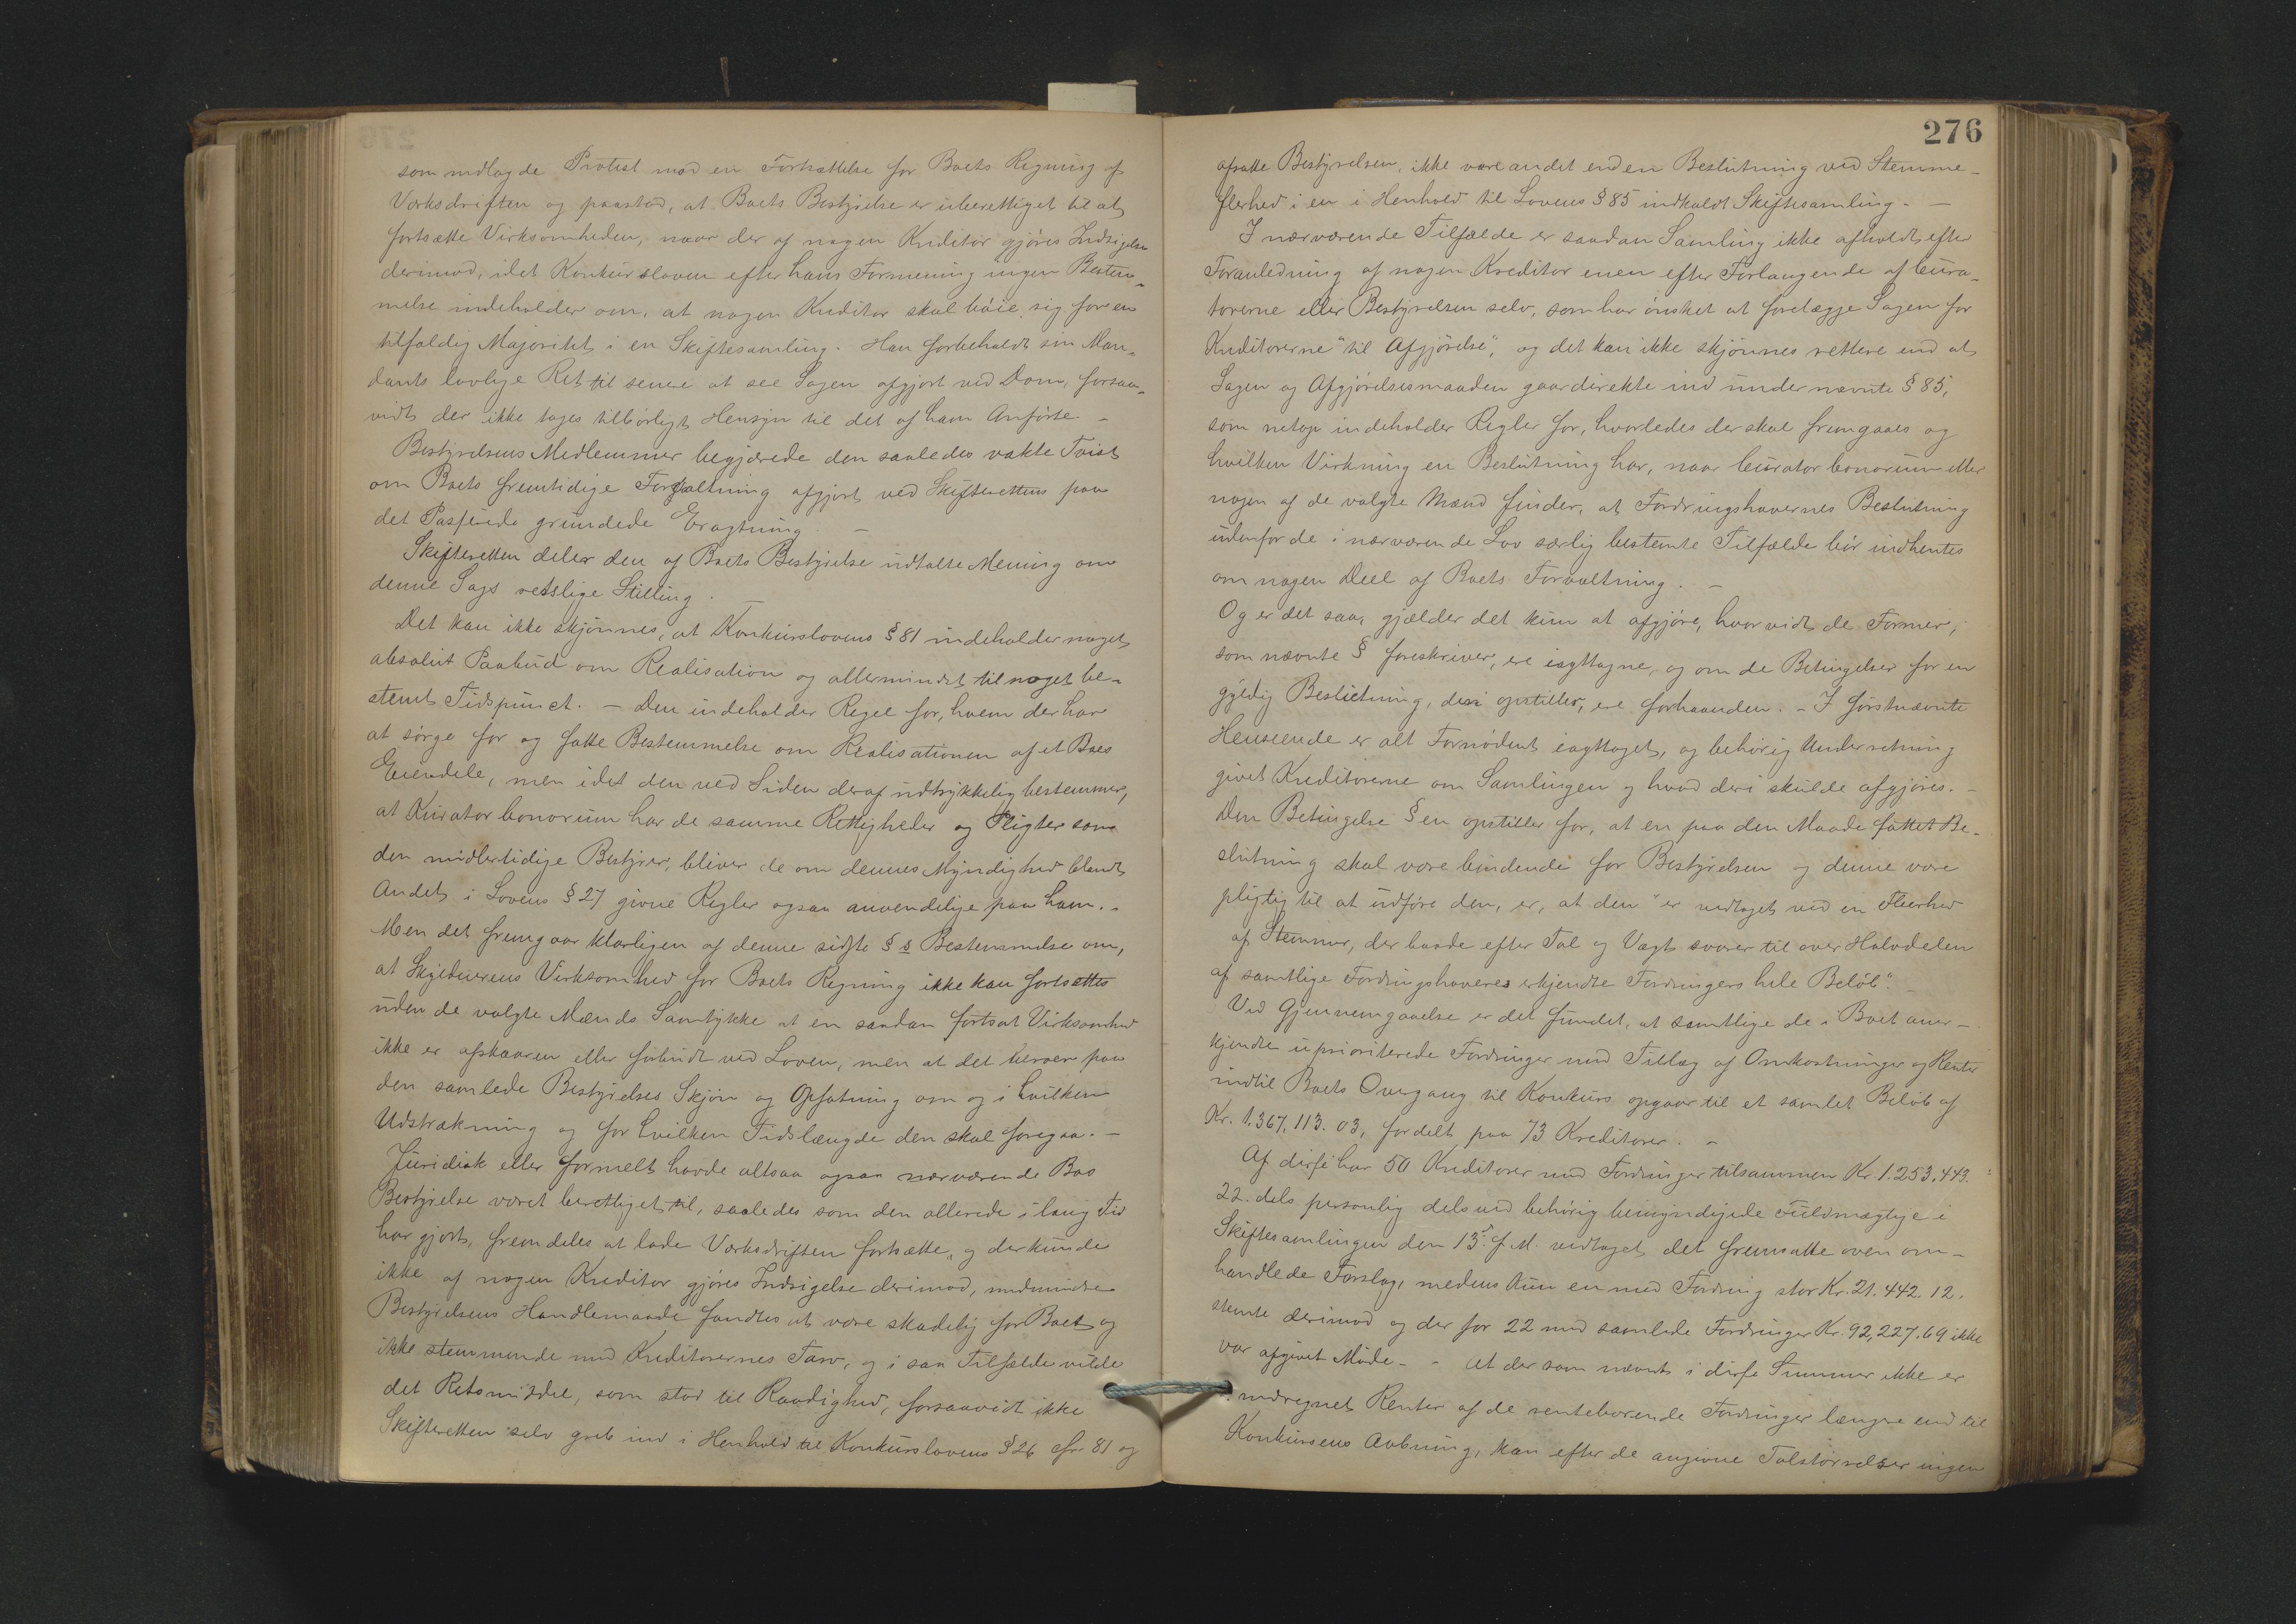 som nedlagde Protest mod en Fortsættelse for Boets Regning af
Værksdriften og paastod, at Boets Bestyrelse er uberettiget til at
fortsætte Virksomheden, naar der af nogen Kreditor gjøres Indsigelse
derimod, idet Konkursloven efter hans Formening ingen Bestem-
melse indeholder om, at nogen Kreditor skal bøie sig for en
tilfældig Majoritet i en Skiftesamling. Han forbeholdt sin Man-
dants lovlige Ret til senere at see Sagen afgjort ved Dom, forsaa-
vidt der ikke tages tilbørligt Hensyn til det af ham Anførte. -
Bestyrelsens Medlemmer begjærede den saaledes vakte Tvist
om Boets fremtidige Forvaltning afgjort ved Skifterettens paa
det Passerede grundede Eragtning. -
Skifteretten deler den af Boets Bestyrelse udtalte Mening om
denne Sags retslige Stilling. -
Det kan ikke skjønnes, at Konkurslovens § 81 indeholder noget
absolut Paabud om Realisation og allermindst til noget be-
stemt Tidspunct. - Den indeholder Regel for, hvem der har
at sørge for og fatte Bestemmelse om Realisationen af et Boes
Eiendele, men idet den ved Siden deraf udtrykkelig bestemmer,
at Kurator bonorum har de samme Rettigheder og Pligter som
den midlertidige Bestyrer, bliver de om dennes Myndighed blandt
Andet i Lovens § 27 givne Regler ogsaa anvendelige paa ham. -
Men det fremgaar klarligen af denne sidste §s Bestemmelse om,
at Skyldnerens Virksomhed for Boets Regning ikke kan fortsættes
uden de valgte Mænds Samtykke at en saadan fortsat Virksomhed
ikke er afskaaren eller forbudt ved Loven, men at det beroer paa
den samlede Bestyrelses Skjøn og Opfatning om og i hvilken
Udstrækning og for hvilken Tidslængde den skal foregaa. -
Juridisk eller formelt havde altsaa ogsaa nærværende Bos
Bestyrelse været berettiget til, saaledes som den allerede i lang Tid
har gjort, fremdeles at lade Værksdriften fortsætte, og der kunde
ikke af nogen Kreditor gjøres Indsigelse derimod, medmindre
Bestyrelsens Handlemaade fandtes at være skadelig for Boet og
ikke stemmende med Kreditorernes Tarv, og i saa Tilfælde vilde
det Retsmiddel, som stod til Raadighed, forsaavidt ikke
Skifteretten selv greb ind i Henhold til Konkurslovens § 26 cfr 81 og
276
afsatte Bestyrelsen, ikke være andet end en Beslutning ved Stemme-
flerhed i en i Henhold til Lovens § 85 indkaldt Skiftesamling. -
I nærværende Tilfælde er saadan Samling ikke afholdt efter
Foranledning af nogen Kreditor men efter Forlangende af Cura-
torerne eller Bestyrelsen selv, som har ønsket at forelægge Sagen for
Kreditorerne "til Afgjørelse", og det kan ikke skjønnes rettere end at
Sagen og Afgjørelsesmaaden gaar direkte ind under nævnte § 85,
som netop indeholder Regler for, hvorledes der skal fremgaaes og
hvilken Virkning en Beslutning har, naar Curator bonorum eller
nogen af de valgte Mænd finder, at Fordringshavernes Beslutning
udenfor de i nærværende Lov særlig bestemte Tilfælde bør indhentes
om nogen Deel af Boets Forvaltning. -
Og er det saa, gjælder det kun at afgjøre, hvorvidt de Former,
som nævnte § foreskriver, ere iagttagne, og om de Betingelser for en
gyldig Beslutning, den opstiller, ere forhaanden. - I førstnævnte
Henseende er alt Fornødent iagttaget, og behørig Underretning
givet Kreditorerne om Samlingen og hvad deri skulde afgjøres. -
Den Betingelse §en opstiller for, at en paa den Maade fattet Be-
slutning skal være bindende for Bestyrelsen og denne være
pligtig til at udføre den, er, at den "er vedtaget ved en Fleerhed
af Stemmer, der baade efter Tal og Vægt svarer til over Halvdelen
af samtlige Fordringshaveres erkjendte Fordringers hele Beløb". -
Ved Gjennemgaaelse er det fundet, at samtlige de i Boet aner-
kjendte uprioriterede Fordringer med Tillæg af Omkostninger og Renter
indtil Boets Overgang til Konkurs opgaar til et samlet Beløb af
Kr. 1.367.113.03, fordelt paa 73 Kreditorer. -
Af disse har 50 Kreditorer med Fordringer tilsammen Kr. 1.253.443.
22. dels personlig dels ved behørig bemyndigede Fuldmægtige i
Skiftesamlingen den 13. f. M. vedtaget det fremsatte oven om-
handlede Forslag, medens kun en med Fordring stor Kr. 21.442.12.
stemte derimod og der for 22 med samlede Fordringer Kr. 92,227.69 ikke
var afgivet Møde. - At der som nævnt i disse Summer ikke er
medregnet Renter af de rentebærende Fordringer længere end til
Konkursens Aabning, kan efter de angivne Talstørrelser ingen